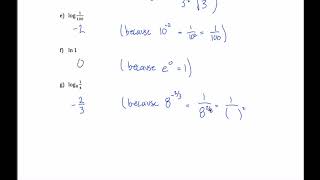 3² √3
e) log 1/100
-2 (because 10⁻² = 1/10² = 1/100)
f) ln 1
0 (because e⁰ = 1)
g)
-2/3 (because 8^(-2/3) = 1/8^(2/3) = 1/( )²